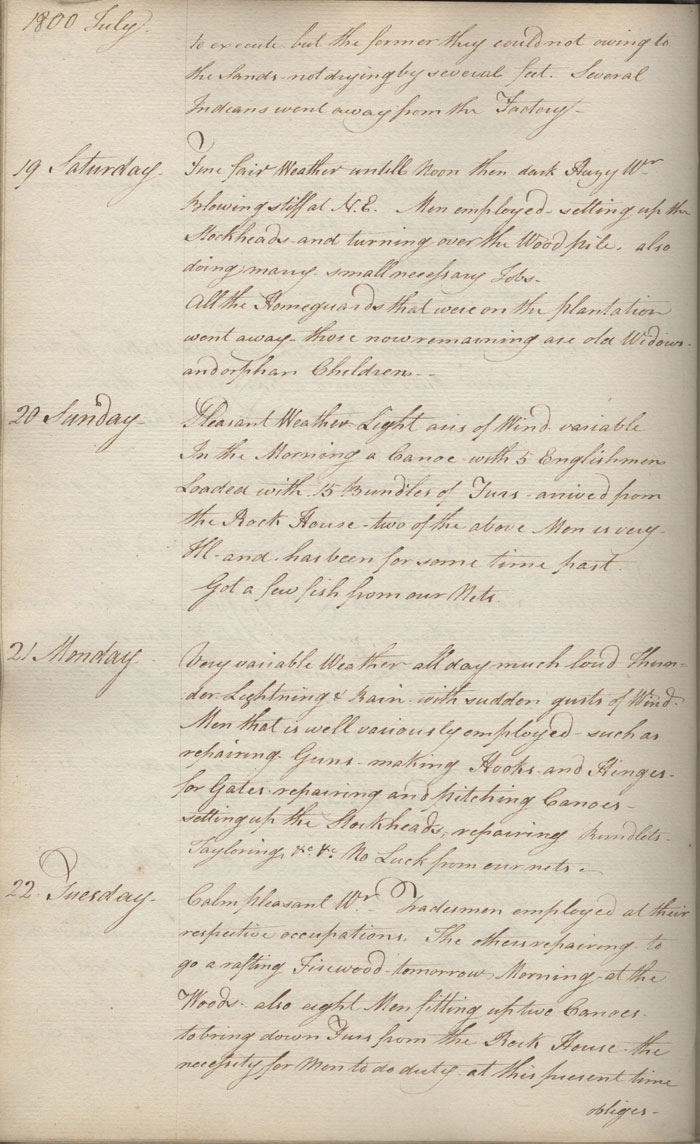 1800 July.
to execute but the former they could not owing to
the Sands not drying by several feet. Several
Indians went away from the Factory-
19 Saturday- Fine fair Weather untill Noon then dark Hazy Wr
Blowing stiff at N.E. Men employed setting up the
Stockheads and turning over the Wood pile. also
doing many small necessary Jobs-
All the Homeguards that were on the plantation
went away- those now remaining are old Widows
and orphan Children--
20 Sunday- Pleasant Weather Light airs of Wind variable
In the Morning a Canoe with 5 Englishmen
Loaded with 15 Bundles of Furs arrived from
the Rock House- two of the above Men is very
Ill- and has been for some time past.
Got a few fish from our Nets
21 Monday- Very variable Weather all day much loud Thun-
der Lightning & Rain with sudden gusts of Wind
Men that is well variously employed- such as
repairing Guns- making Hooks and Hinges-
for Gates repairing and pitching Canoes-
setting up the Stockheads, repairing Rundlets-
Tayloring, &c. &c. No Luck from our nets-
22. Tuesday- Calm pleasant Wr- Tradesmen employed at their
respective occupations. The others repairing to
go a rafting Firewood tomorrow Morning at the
Woods- also eight Men fitting up two Canoes-
to bring down Furs from the Rock House- the
necessity for Men to do duty at this present time
obliges-